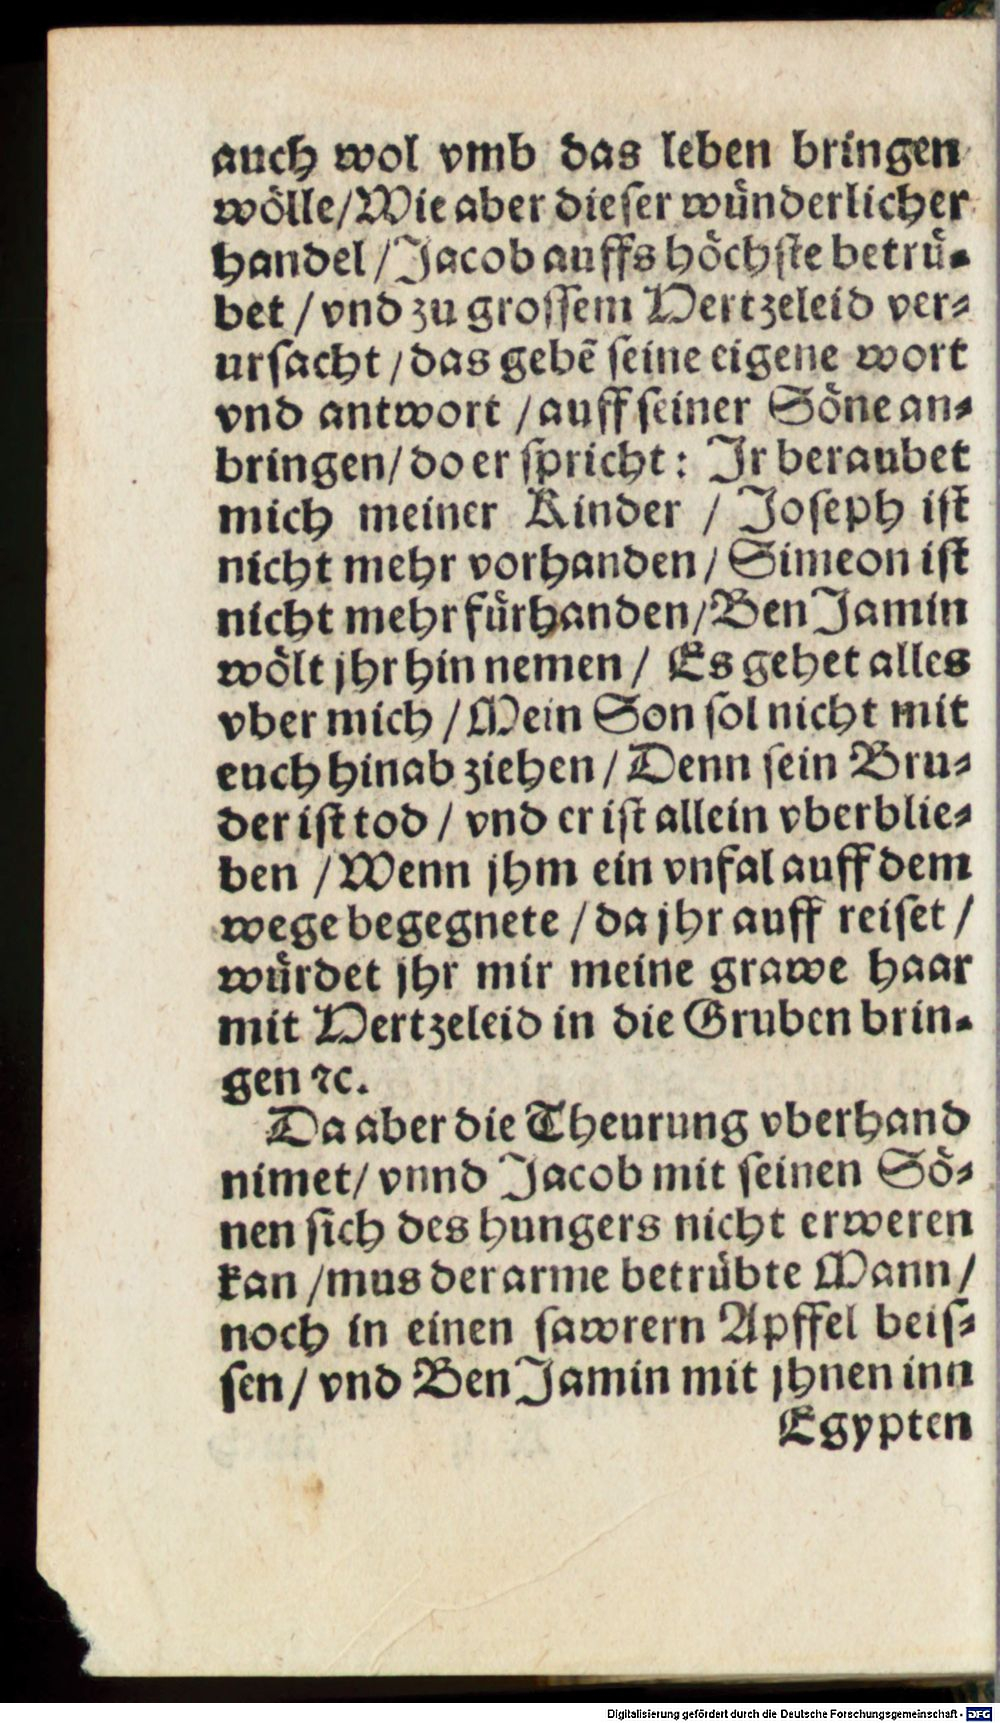 auch wol vmb das leben bringen
wölle/Wie aber dieser wünderlicher
handel/Jacob auffs höchste betrü-
bet/vnd zu grossem Hertzeleid ver-
ursacht/das gebẽ seine eigene wort
vnd antwort/auff seiner Söne an-
bringen/do er spricht: Ir beraubet
mich meiner Kinder / Joseph ist
nicht mehr vorhanden/Simeon ist
nicht mehr fürhanden/Ben Jamin
wölt jhr hin nemen/ Es gehet alles
vber mich/Mein Son sol nicht mit
euch hinab ziehen/Denn sein Bru-
der ist tod/vnd er ist allein vberblie-
ben/Wenn jhm ein vnfal auff dem
wege begegnete/da jhr auff reiset/
würdet jhr mir meine grawe haar
mit Hertzeleid in die Gruben brin-
gen ꝛc.
Da aber die Theurung vberhand
nimet/vnnd Jacob mit seinen Sö-
nen sich des hungers nicht erweren
kan/mus der arme betrübte Mann/
noch in einen sawrern Apffel beis-
sen/vnd Ben Jamin mit jhnen inn
Egypten
Digitalisierung gefördert durch die Deutsche Forschungsgemeinschaft - DFG